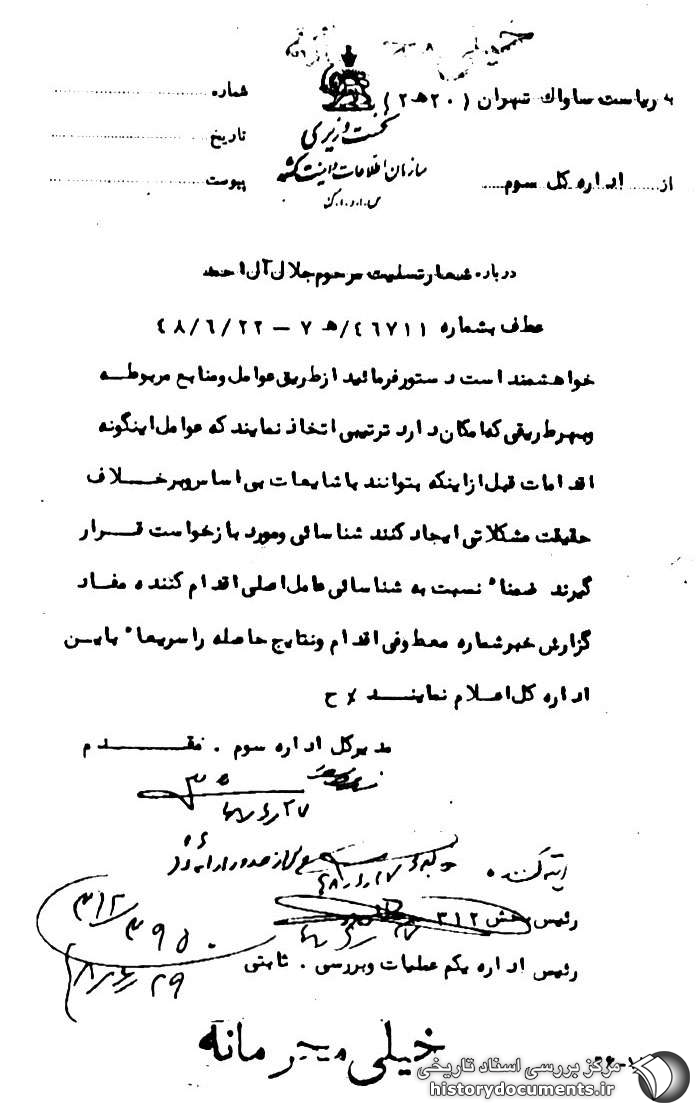 خیلی
به ریاست ساواک تهران ( ۲۰هـ۲ )
شماره
نخست وزیری
تاریخ
سازمان اطلاعات و امنیت کشور
از اداره کل سوم
پیوست
س.ا.و.ا.ک
درباره شعار تسلیت مرحوم جلال آل احمد
عطف بشماره ۴۶۷۱۱/هـ ۷ – ۴۸/۶/۲۲
خواهشمند است دستور فرمائید از طریق عوامل و منابع مربوطه
وبهر طریقی که امکان دارد ترتیبی اتخاذ نمایند که عوامل اینگونه
اقدامات قبل از اینکه بتوانند با شایعات بی اساس و بر خلاف
حقیقت مشکلاتی ایجاد کنند شناسائی و مورد بازخواست قرار
گیرند ضمنا" نسبت به شناسائی عامل اصلی اقدام کننده مفاد
گزارش خبر شماره معطوفی اقدام و نتایج حاصله را سریعا" باین
اداره کل اعلام نمایند ٪ ح
مدیرکل اداره سوم . مقدم
۲۷
از صدور ارائه شود
۴۸
رئیس بخش ۳۱۲
۳۱۲
۳۹۵۰
رئیس اداره یکم عملیات و بررسی . ثابتی
۴۸/۶/۲۹
خیلی محرمانه
مرکز بررسی اسناد تاریخی
historydocuments.ir